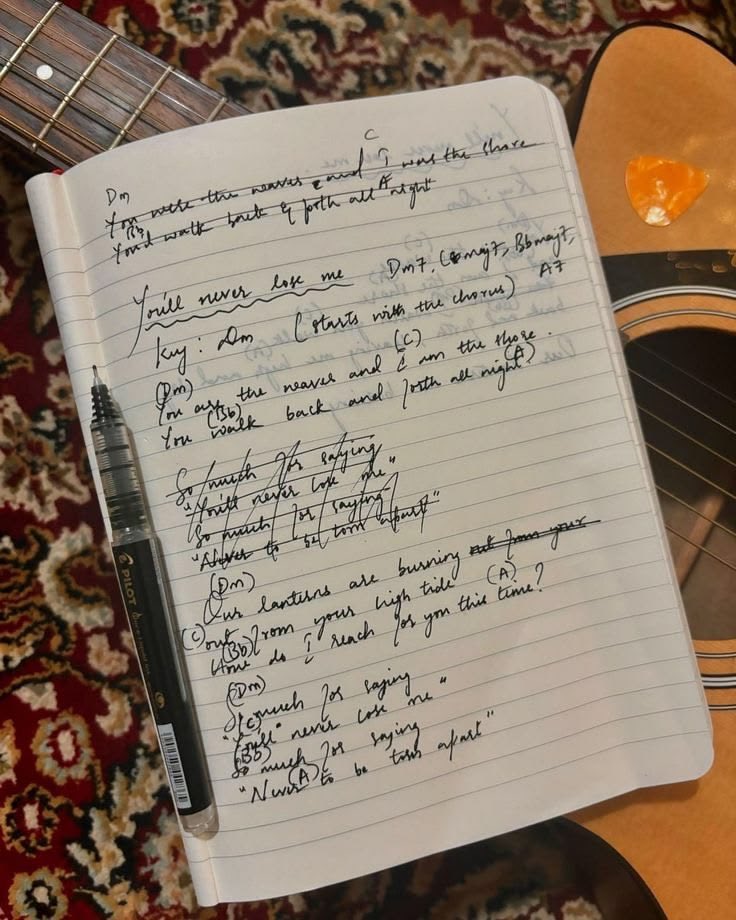 C
Dm
You were the waves and I was the shore
Bb A
You'd walk back & forth all night
You'll never lose me
Dm7, Cmaj7, Bbmaj7, A7
Key: Dm (starts with the chorus)
(Dm) (C)
You are the waves and I am the shore.
(Bb) (A)
You walk back and forth all night
So much for saying
"You'll never lose me"
So much for saying
"Never to be torn apart"
(Dm)
Our lanterns are burning out from your
(C) out from your high tide (A)
(Bb)
How do I reach for you this time?
(Dm)
So much for saying
(C)
"You'll never lose me"
(Bb)
So much for saying
(A)
"Never to be torn apart"
PILOT